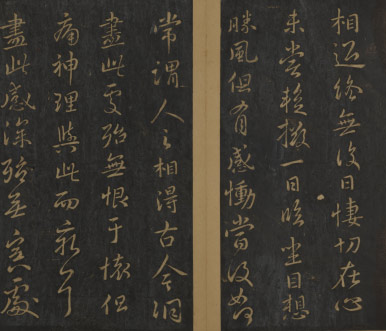 相過終無復日悽切在心
未嘗暫撥一日臨坐目想
勝風但有感慟當復如何
常謂人之相得古今洞
盡此處殆無恨于懷但
痛神理與此而窮耳
盡此感深殆無冥處